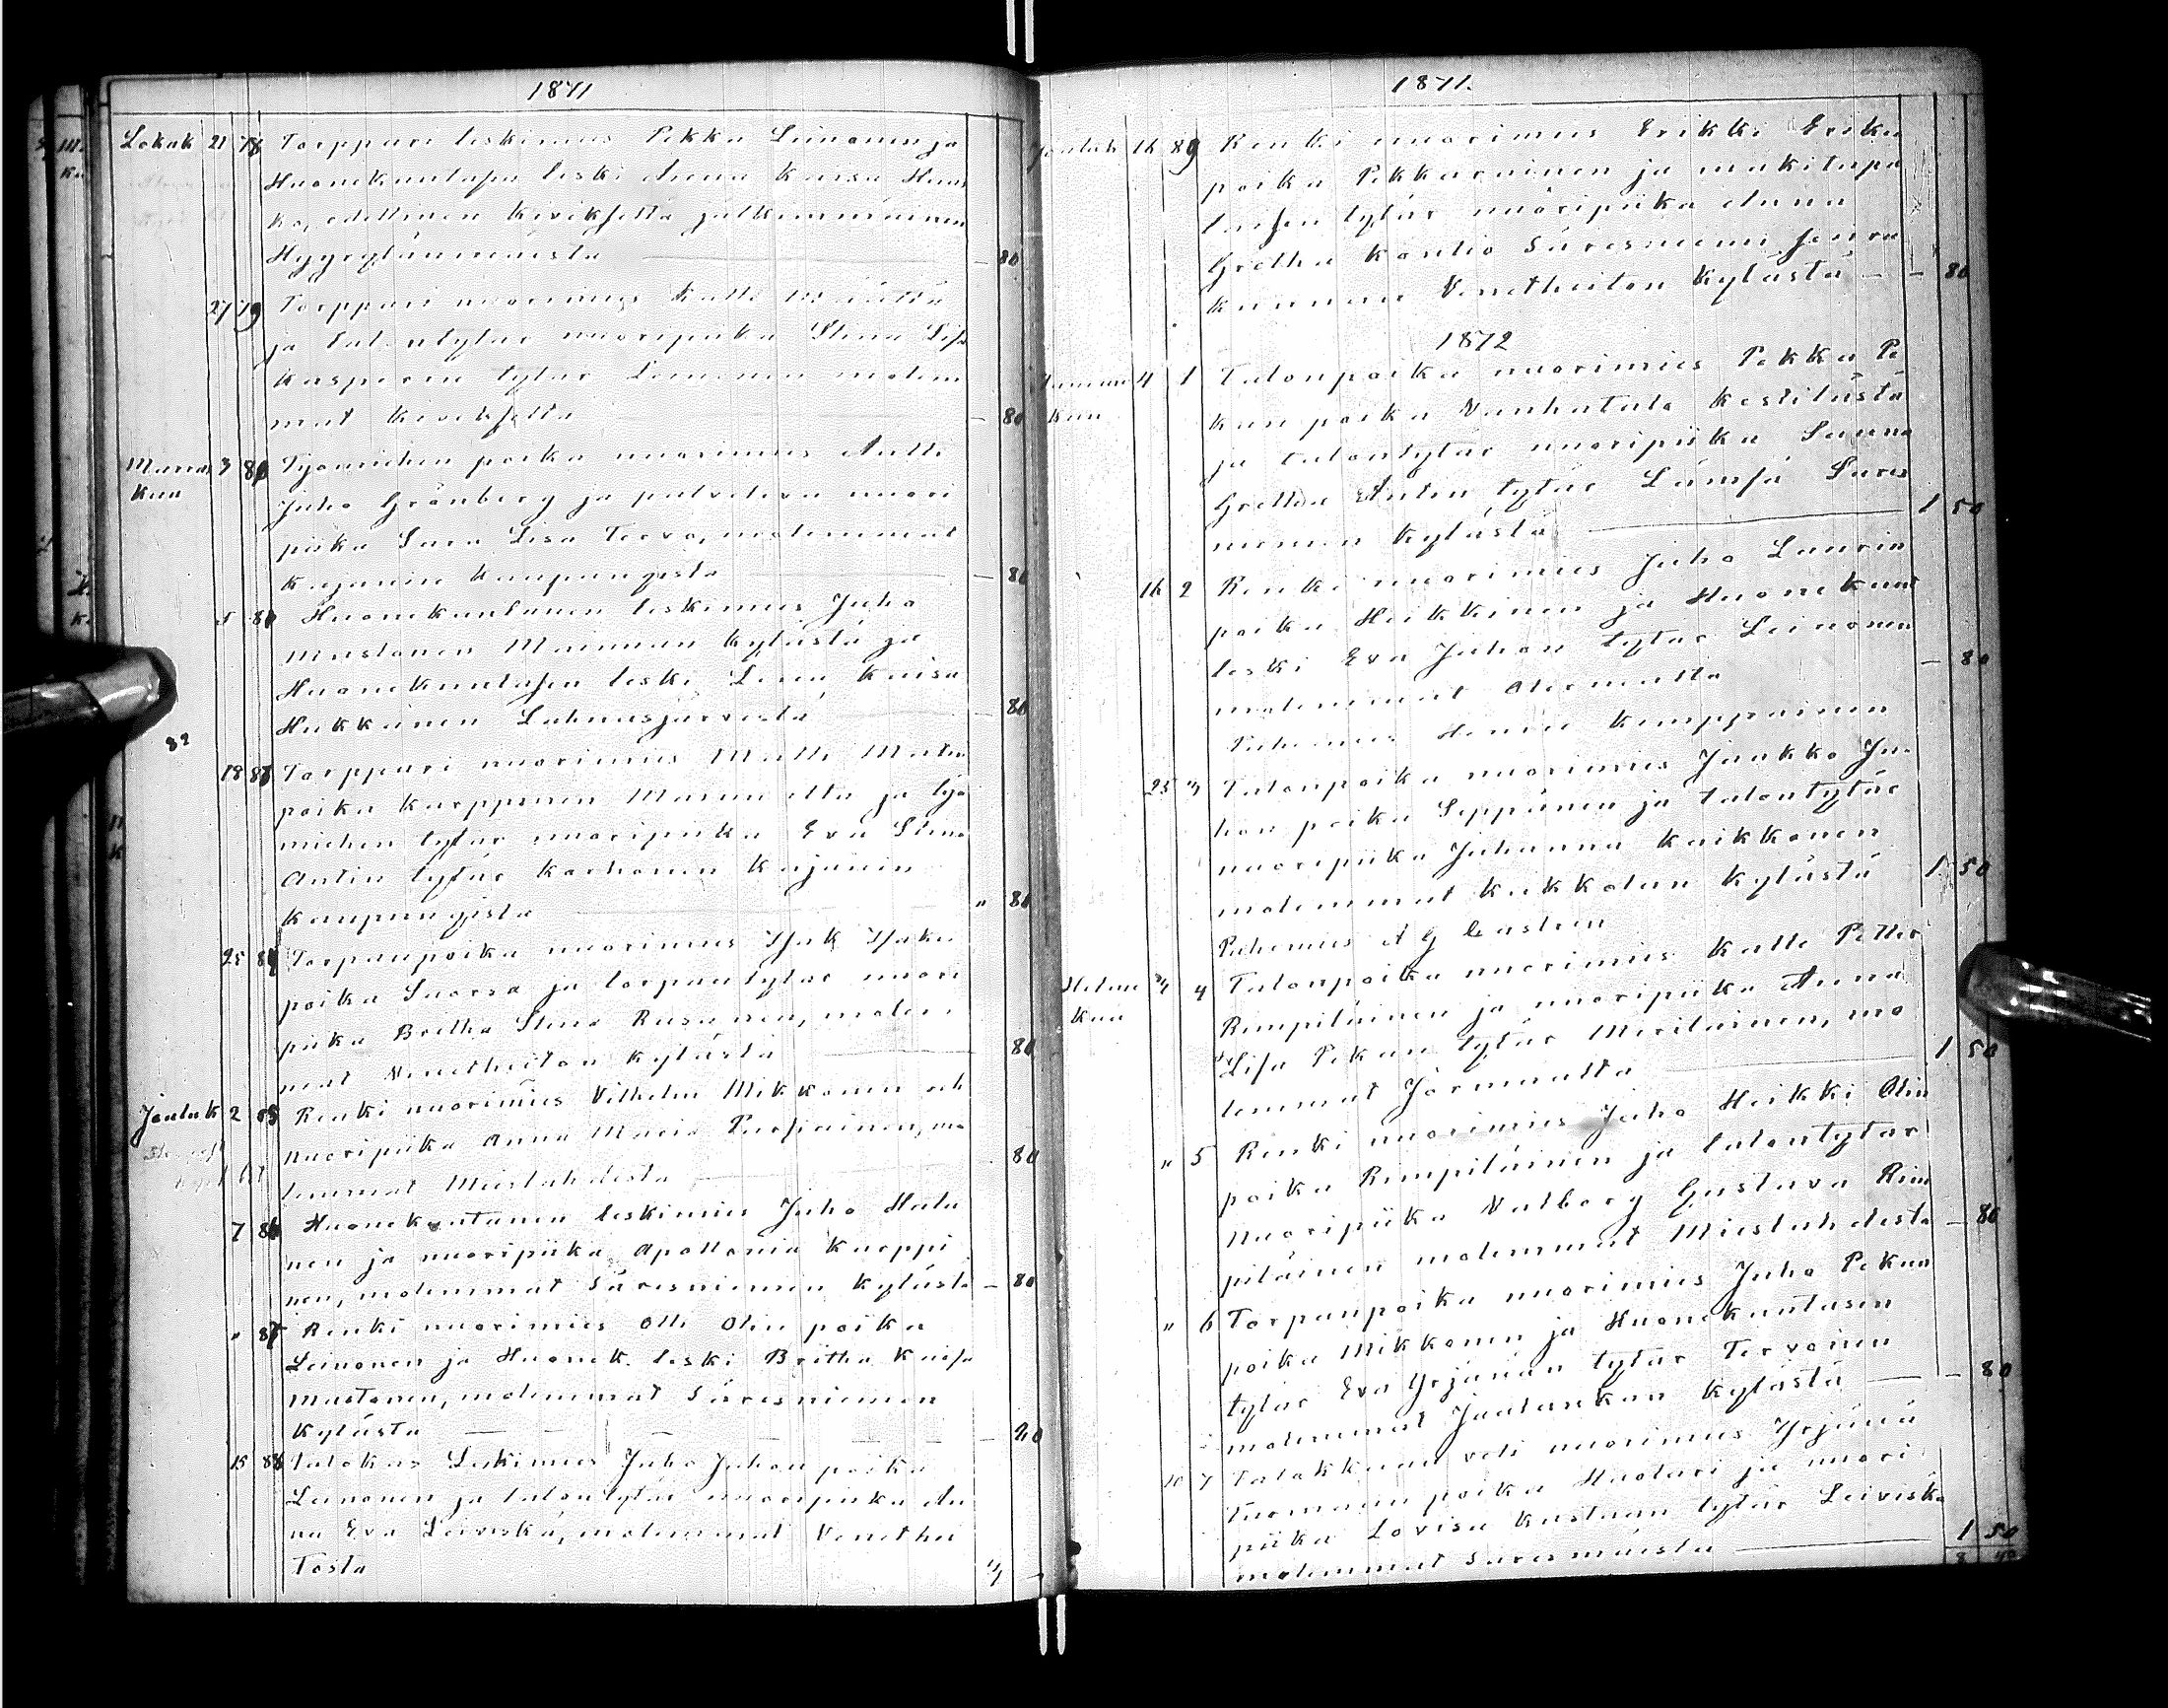 1871
Lokak 21 78 Torppari leskimies Pekka Leinonen ja
Huonekuntasen leski Anna Kaisa Haus
ka, edellinen Kivikseltä jälkimmäinen
Hyyrylänmäistä — 80
27 79 Torppari nuorimies Kalle Määttä
ja talontytär nuoripiika Stina Lisa
Kasperin tytär Leinonen molem
mat Kivekseltä — 80
Marras 3 80 Työmiehen poika nuorimies Antti
Kuu
Juho Grönberg ja palveleva nuori
piika Sara Lisa Tervo, molemmat
Kajanin kaupungista — 80
5 81 Huonekuntanen leskimies Juho
Mustonen Mainuan kylästä ja
Huonekuntasen leski Lena Kaisa
Heikkinen Lahnasjärvestä 80
82
18 Torppari nuorimies Matti Matin
poika Karppinen Mainualta ja työ
miehen tytär nuoripiika Eva Stina
Antin tytär Karhonen Kajanin
kaupungista " 80
25 Torpanpoika nuorimies Isak Isakin
poika Suorsa ja torpantytär nuori
piika Britha Stina Rusanen, molem
mat Venetheiton kylästä 80
Jouluk 2 85 Renki nuorimies Vilhelm Mikkonen ja
nuoripiika Anna Maria Pursiainen, mo
lemmat Mieslahdesta 80
7 86 Huonekuntanen leskimies Juho Hala
nen ja nuoripiika Apollonia Karppi
nen, molemmat Säresniemen kylästä — 80
" 87 Renki nuorimies Olli Olin poika
Leinonen ja Huonek. leski Britha Kaisa
Mustonen, molemmat Säresniemen
kylästä — 20
15 88 Talokas Leskimies Juho Juhon poika
Leinonen ja talontytär nuoripiika An
na Eva Leiviskä, molemmat Venethei
tosta
1871.
Jouluk 16 89 Renki nuorimies Erikki Erikin
poika Pikkarainen ja mäkitupa
laisen tytär nuoripiika Anna
Gretha Kontio Säresniemi seura
kunnan Venetheiton kylästä — — 80
1872
Tammi 4 1 Talonpoika nuorimies Pekka Pe
kuu
kan poika Vanhatalo Kestilästä
ja talontytär nuoripiika Sanna
Gretha Antin tytär Lämsä Säres
niemen kylästä — 1 50
16 2 Renki nuorimies Juho Laurin
poika Heikkinen ja Huonekunt
leski Eva Juhon tytär Leinonen
molemmat Otermalta — 80
Puhemies Henric Kemppainen
25 3 Talonpoika nuorimies Jaakko Ju
hon poika Seppänen ja talontytär
nuoripiika Johanna Kaikkonen
molemmat Kukkolan kylästä 1 50
Puhemies A G Castren
Helmi 4 Talonpoika nuorimies Kalle Petter
kuu
Rimpiläinen ja nuoripiika Anna
Lisa Pekan tytär Meriläinen, mo
lemmat Jormualta 1 50
" 5 Renki nuorimies Juho Heikki Olin
poika Rimpiläinen ja talontytär
nuoripiika Valborg Gustava Rim
piläinen molemmat Mieslahdesta — 80
" 6 Torpanpoika nuorimies Juho Pekan
poika Mikkonen ja Huonekuntasen
tytär Eva Yrjänän tytär Tervonen
molemmat Jaalankan kylästä — — 80
10 7 Talokkaan veli nuorimies Yrjänä
Tuomaan poika Huotari ja nuori
piika Lovisa Kustaan tytär Leiviskä
molemmat Säresmäistä — 1 50
8 40